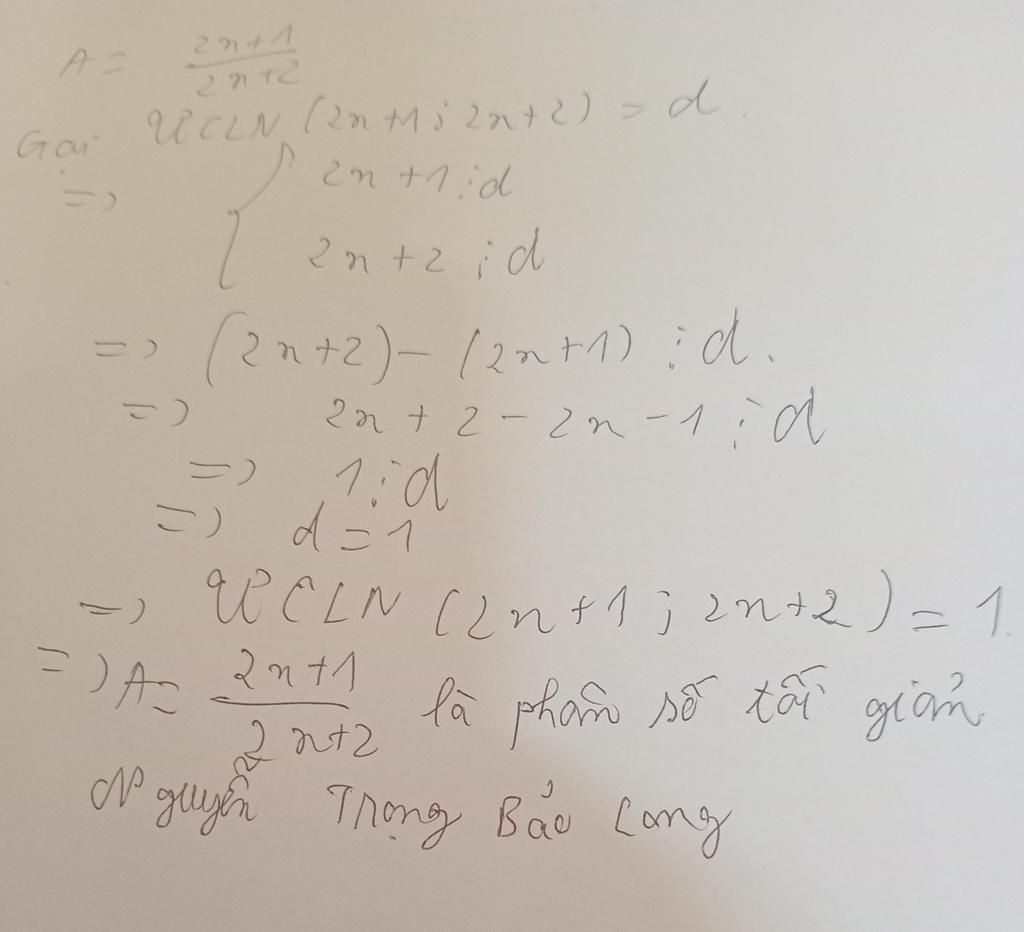 A = \frac{2n+1}{2n+2}
Gọi ƯCLN (2n+1; 2n+2) = d.
=> { 2n+1 ⋮ d
2n+2 ⋮ d
=> (2n+2) - (2n+1) ⋮ d.
=> 2n + 2 - 2n - 1 ⋮ d
=> 1 ⋮ d
=> d = 1
=> ƯCLN (2n+1; 2n+2) = 1.
=> A = \frac{2n+1}{2n+2} là phân số tối giản.
Nguyễn Trọng Bảo Long